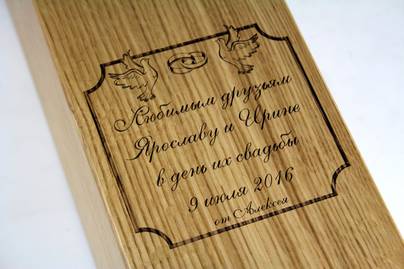 Любимым друзьям
Ярославу и Ирине
в день их свадьбы
9 июля 2016
от Алексея